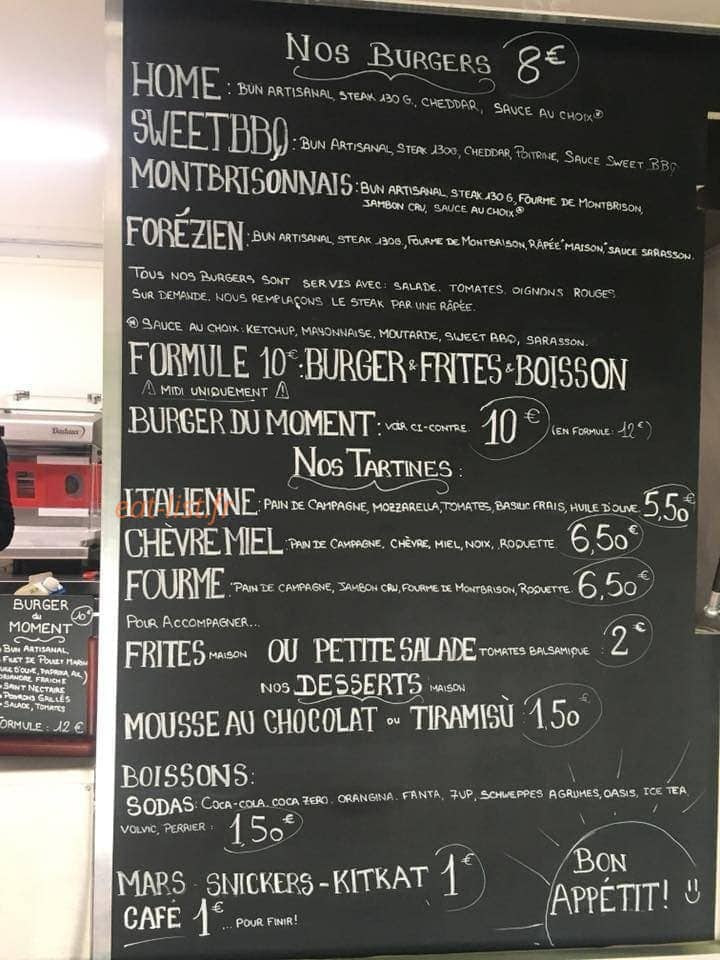 NOS BURGERS 8€
HOME : BUN ARTISANAL, STEAK 130 G, CHEDDAR, SAUCE AU CHOIX*
SWEET BBQ : BUN ARTISANAL, STEAK 130G, CHEDDAR, POITRINE, SAUCE SWEET BBQ
MONTBRISONNAIS : BUN ARTISANAL, STEAK 130 G, FOURME DE MONTBRISON,
JAMBON CRU, SAUCE AU CHOIX*
FORÉZIEN : BUN ARTISANAL, STEAK 130G, FOURME DE MONTBRISON, RÂPÉE "MAISON", SAUCE SARASSON.
TOUS NOS BURGERS SONT SERVIS AVEC: SALADE. TOMATES. OIGNONS ROUGES.
SUR DEMANDE. NOUS REMPLAÇONS LE STEAK PAR UNE RÂPÉE.
* SAUCE AU CHOIX: KETCHUP, MAYONNAISE, MOUTARDE, SWEET BBQ, SARASSON.
FORMULE 10€: BURGER & FRITES & BOISSON
⚠ MIDI UNIQUEMENT ⚠
BURGER DU MOMENT : VOIR CI-CONTRE. 10€ (EN FORMULE: 12€)
NOS TARTINES :
ITALIENNE : PAIN DE CAMPAGNE, MOZZARELLA, TOMATES, BASILIC FRAIS, HUILE D'OLIVE. 5,50€
CHÈVRE MIEL : PAIN DE CAMPAGNE, CHÈVRE, MIEL, NOIX, ROQUETTE. 6,50€
FOURME : PAIN DE CAMPAGNE, JAMBON CRU, FOURME DE MONTBRISON, ROQUETTE. 6,50€
POUR ACCOMPAGNER...
FRITES MAISON OU PETITE SALADE TOMATES BALSAMIQUE : 2€
NOS DESSERTS MAISON
MOUSSE AU CHOCOLAT OU TIRAMISÙ : 1,50€
BOISSONS:
SODAS: COCA-COLA. COCA ZERO. ORANGINA. FANTA, 7UP, SCHWEPPES AGRUMES, OASIS, ICE TEA,
VOLVIC, PERRIER : 1,50€
MARS - SNICKERS - KITKAT 1€
CAFÉ 1€ ... POUR FINIR!
BON
APPÉTIT!
eat-list.fr
BURGER
du
MOMENT 10€
BUN ARTISANAL
FILET DE POULET MARINÉ
HUILE D'OLIVE, PAPRIKA, AIL,
CORIANDRE FRAICHE)
SAINT NECTAIRE
POIVRONS GRILLÉS
SALADE, TOMATES
FORMULE : 12€